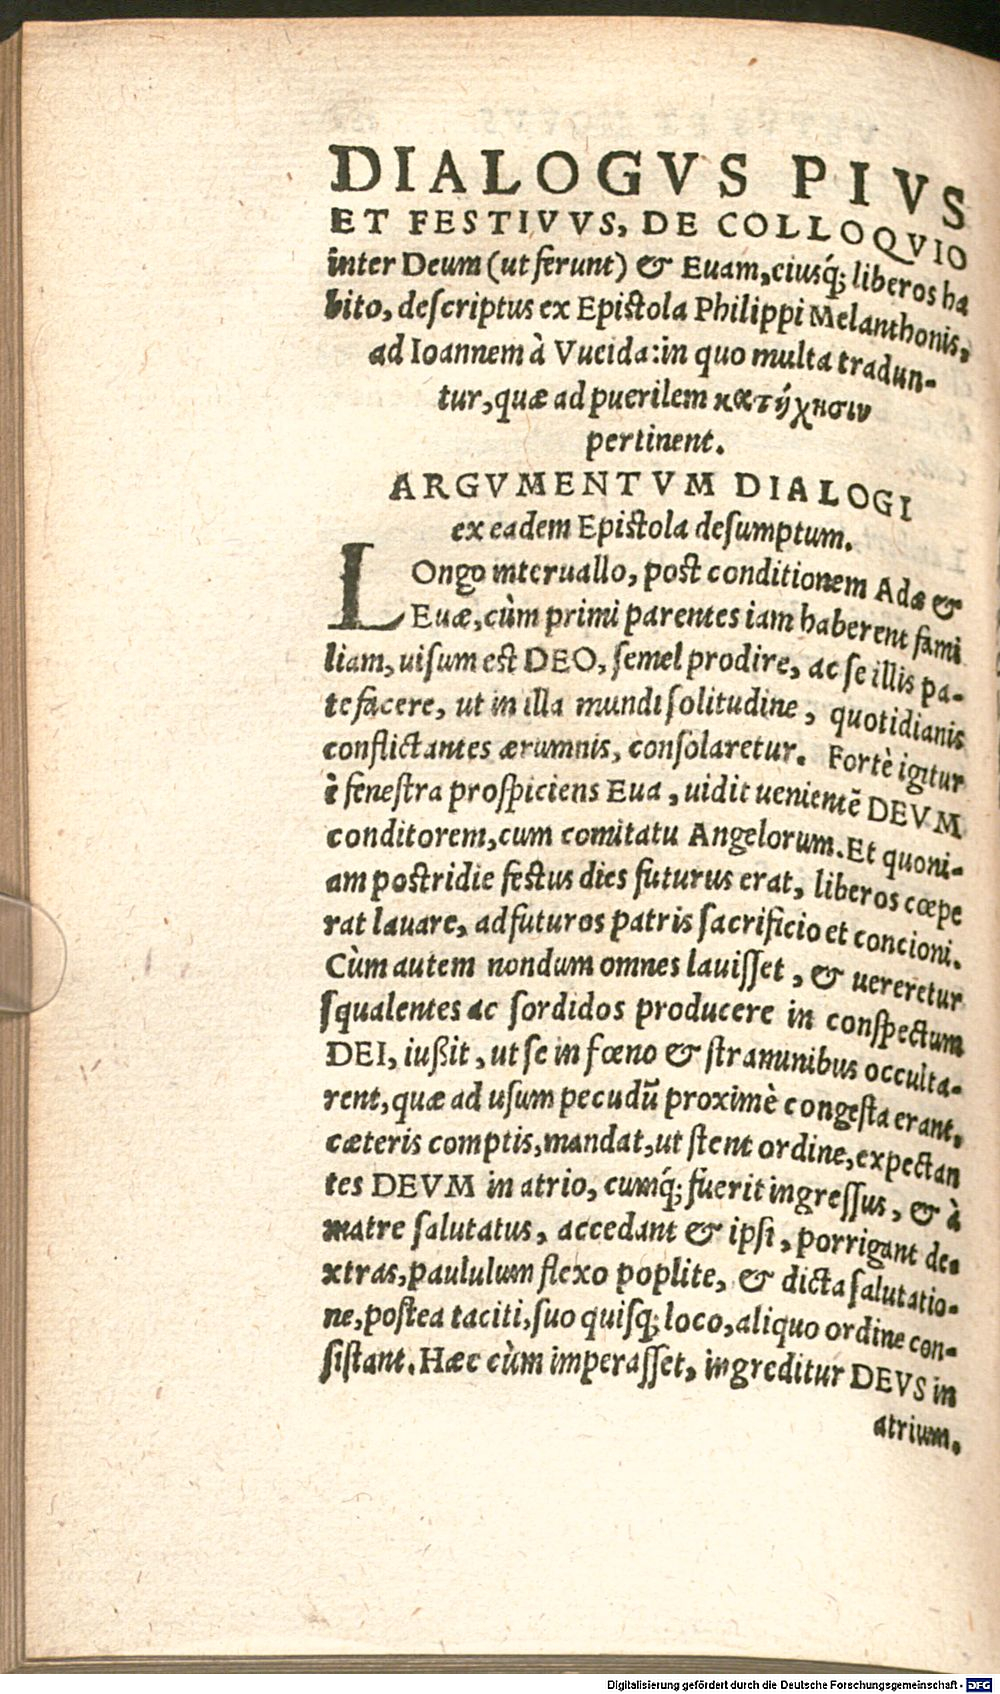 DIALOGVS PIVS
ET FESTIVVS, DE COLLOQVIO
inter Deum (ut ferunt) & Euam, eiusq́; liberos ha
bito, descriptus ex Epistola Philippi Melanthonis,
ad Ioannem à Vueida: in quo multa tradun-
tur, quæ ad puerilem κατήχησιν
pertinent.
ARGVMENTVM DIALOGI
ex eadem Epistola desumptum.
LOngo interuallo, post conditionem Adæ &
Euæ, cùm primi parentes iam haberent fami
liam, uisum est DEO, semel prodire, ac se illis pa-
tefacere, ut in illa mundi solitudine, quotidianis
conflictantes ærumnis, consolaretur. Fortè igitur
è fenestra prospiciens Eua, uidit uenientē DEVM
conditorem, cum comitatu Angelorum. Et quoni-
am postridie festus dies futurus erat, liberos cœpe
rat lauare, ad futuros patris sacrificio et concioni.
Cùm autem nondum omnes lauisset, & uereretur
squalentes ac sordidos producere in conspectum
DEI, iußit, ut se in fœno & stramunibus occulta-
rent, quæ ad usum pecudū proximè congesta erant,
cæteris comptis, mandat, ut stent ordine, expectan
tes DEVM in atrio, cumq́; fuerit ingressus, & à
matre salutatus, accedant & ipsi, porrigant de-
xtras, paululum flexo poplite, & dicta salutatio-
ne, postea taciti, suo quisq; loco, aliquo ordine con-
sistant. Hæc cùm imperasset, ingreditur DEVS in
atrium.
Digitalisierung gefördert durch die Deutsche Forschungsgemeinschaft - DFG